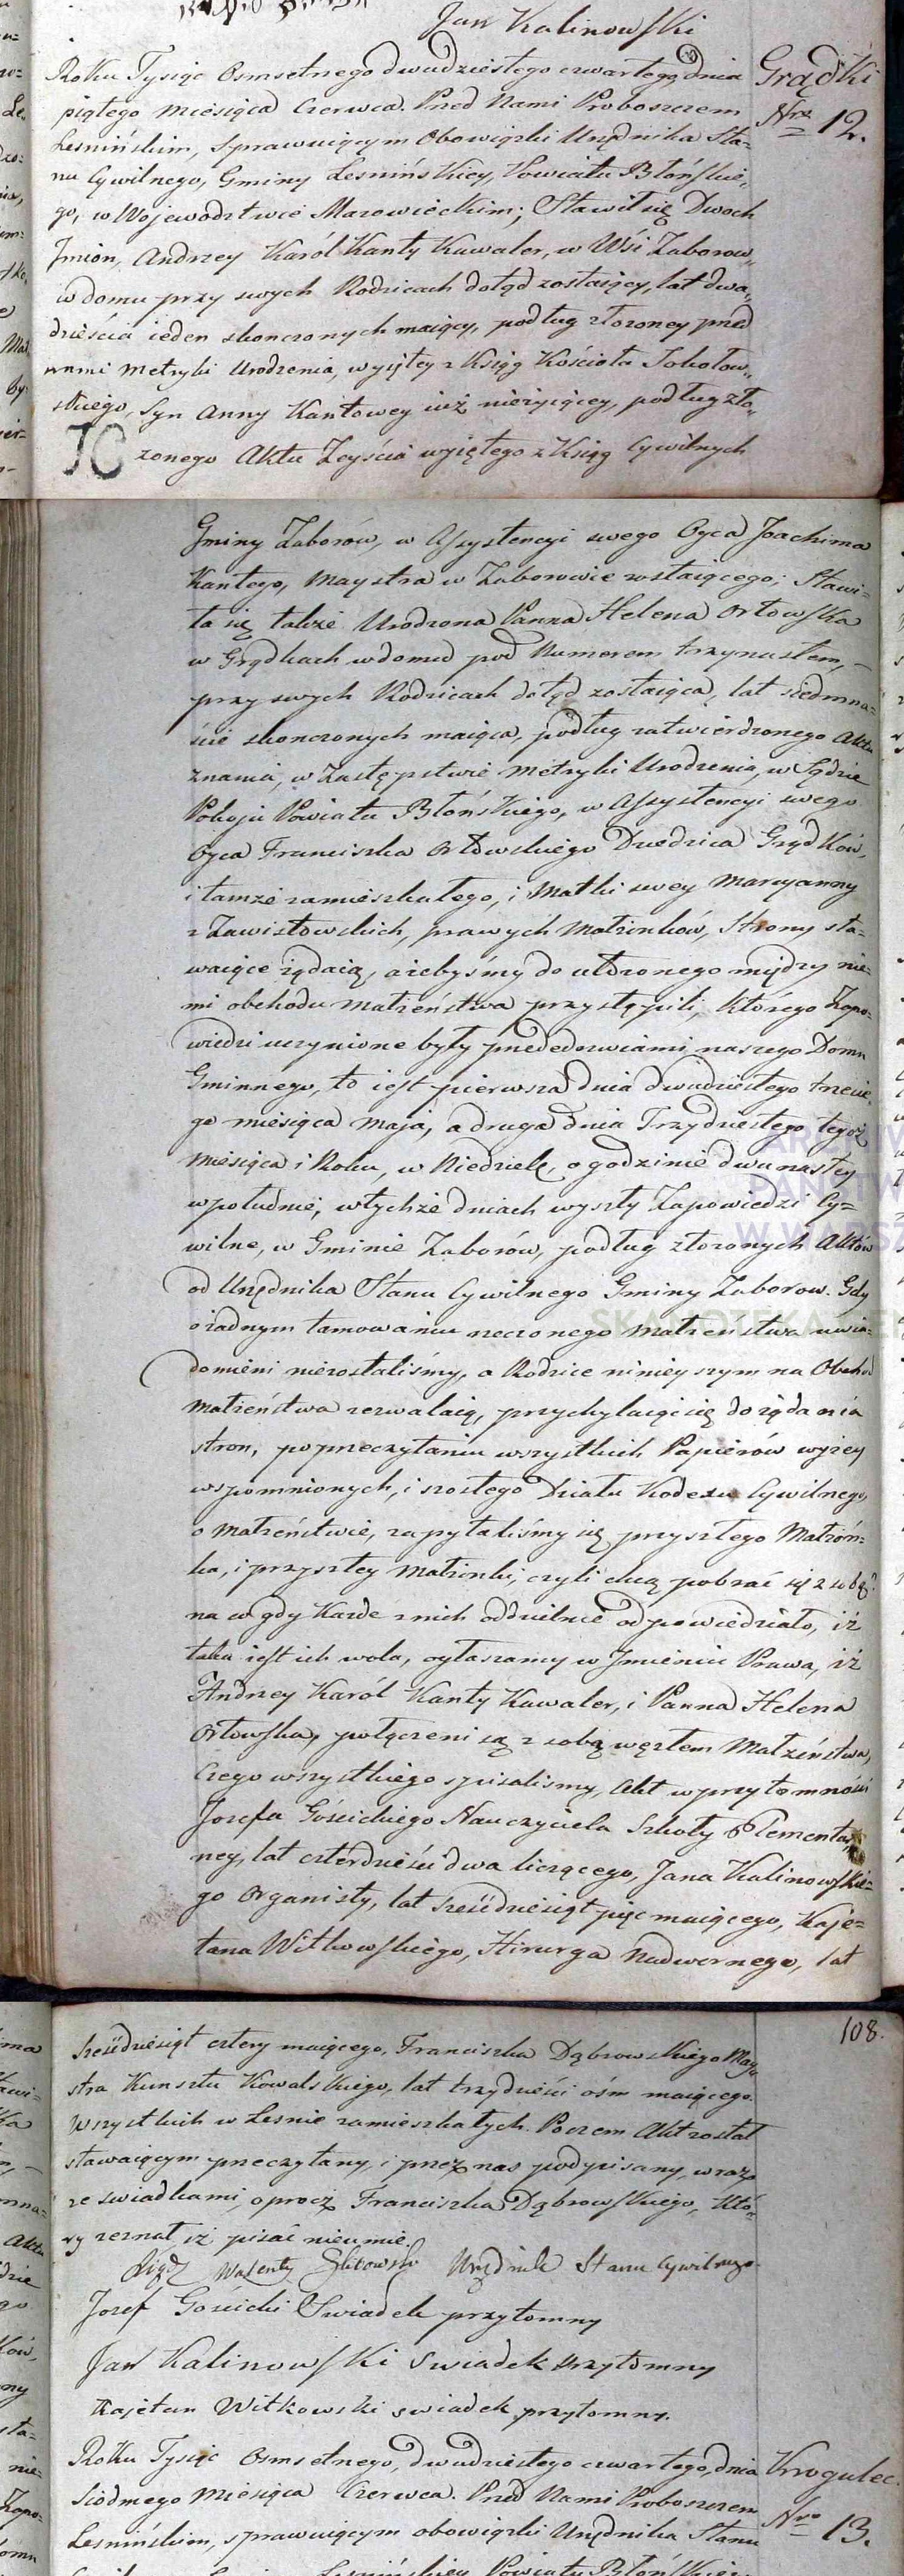 Jan Kalinowski
Grądki
Nro 12.
Roku Tysiąc Osmsetnego dwudziestego czwartego, dnia
piątego Miesiąca Czerwca. Przed Nami Proboszczem
Lesnińskim, Sprawuiącym Obowiązki Urzędnika Sta=
nu Cywilnego, Gminy Lesnińskiey, Powiatu Błońskie„
go, w Wojewodztwie Mazowieckim; Stawił się Dwoch
Jmion, Andrzey Karól Kanty Kawaler, w Wsi Zaborow„
w domu przy swych Rodzicach dotąd zostaiący, lat dwa„
dzieścia ieden skonczonych maiący, podług złozoney przed
nami Metryki Urodzenia, wyiętey z Ksiąg Kościoła Sokołow„
skiego, Syn Anny Kantowey iuż nieżyiącey, podług zło„
zonego Aktu Zeyścia wyiętego z Ksiąg Cywilnych
Gminy Zaborów, w Assystencyi swego Oyca Joachima
Kantego, Maystra w Zaborowie zostaiącego; Stawi=
ła się także Urodzona Panna Helena Orłowska
w Grądkach w domu pod Numerem trzynastem,
przy swych Rodzicach dotąd zostaiąca, lat siedmna=
ście skonczonych maiąca, podług zatwierdzonego Aktu
znania, w Zastępstwie Metryki Urodzenia, w Sądzie
Pokoju Powiatu Błońskiego, w Assystencyi swego
Oyca Franciszka Orłowskiego Dziedzica Grądków,
i tamze zamieszkałego, i Matki swey Maryanny
z Zawistowskich, prawych Małzonków, Strony sta=
waiące żądaią, ażebyśmy do ułozonego między nie=
mi obchodu Małzeństwa przystąpili, którego Zapo=
wiedzi uczynione były przededrzwiami naszego Domu
Gminnego, to iest pierwsza dnia dwudziestego trzecie„
go miesiąca Maja, a druga dnia Trzydziestego tegoż
Miesiąca i Roku, w Niedzielę, o godzinie dwunastey
w południe, w tychże dniach wyszły Zapowiedzi Cy=
wilne, w Gminie Zaborów, podług złozonych Aktów
od Urzędnika Stanu Cywilnego Gminy Zaborow. Gdy
o żadnym tamowaniu rzeczonego Małzenstwa uwia=
domieni niezostaliśmy, a Rodzice ninieyszym na Obchod
Małzeństwa zezwalaią, przychylaiąc się do żądania
stron, po przeczytaniu wszystkich Papierów wyżey
wspomnionych, i szostego Działu Kodexu Cywilnego,
o Małzeństwie, zapytaliśmy się przyszłego Małzon=
ka, i przyszłey Małzonki, czyli chcą pobrać się z sobą?
na co gdy Każde z nich oddzielnie odpowiedziało, iż
taka iest ich wola, ogłaszamy w Jmieniu Prawa, iż
Andrzey Karól Kanty Kawaler, i Panna Helena
Orłowska, połączeni są z sobą węzłem Małzeństwa,
Czego wszystkiego spisalismy, Akt w przytomności
Jozefa Gościckiego Nauczyciela Szkoły Elementar„
ney, lat czterdzieści dwa liczącego, Jana Kalinowskie=
go Organisty, lat sześćdziesiąt pięc maiącego, Kaje=
tana Witkowskiego, Hirurga Nadwornego, lat
108.
sześćdziesiąt cztery maiącego, Franciszka Dąbrowskiego May„
stra Kunsztu Kowalskiego, lat trzydzieści ośm maiącego.
Wszystkich w Lesnie zamieszkałych. Poczem Akt został
stawaiącym przeczytany, i przez nas podpisany, wraz
ze swiadkami, oprocz Franciszka Dąbrowskiego, któ=
ry zeznał, iż pisać nieumie.
Xiądz Walenty Urzędnik Stanu Cywilnego
Jozef Goscicki Swiadek przytomny
Jan Kalinowski Swiadek Przytomny
Kajetan Witkowski swiadek przytomny.
Krogulec.
Nro 13.
Roku Tysiąc Osmsetnego, dwudziestego czwartego, dnia
Siodmego Miesiąca Czerwca. Przed Nami Proboszczem
Lesnińskim, sprawuiącym obowiązki Urzędnika Stanu